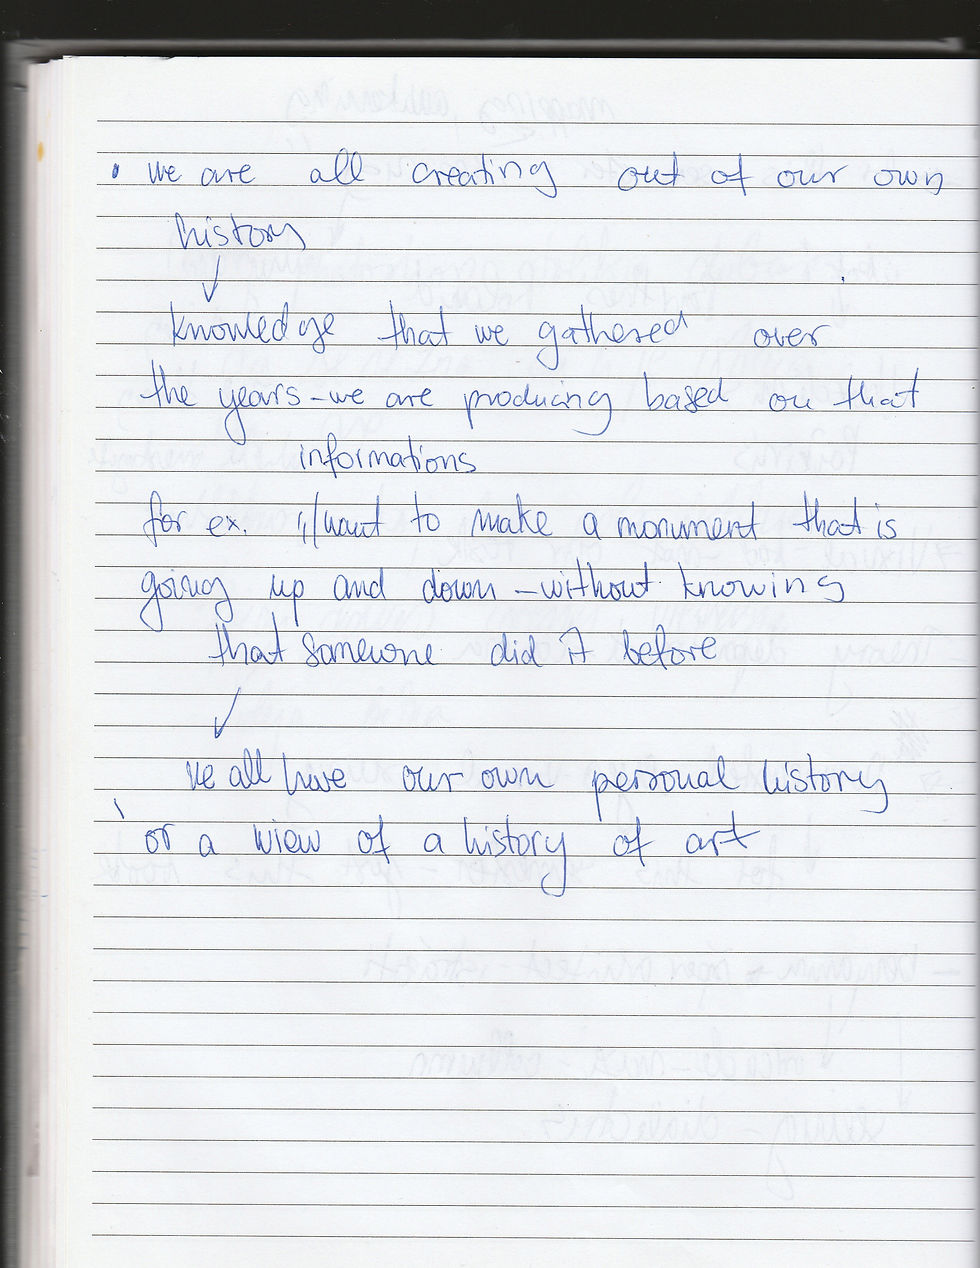 • we are all creating out of our own
history
↓
knowledge that we gathered over
the years - we are producing based on that
informations
for ex. "I want to make a monument that is
going up and down - without knowing
that someone did it before
↓
we all have our own personal history
or a view of a history of art